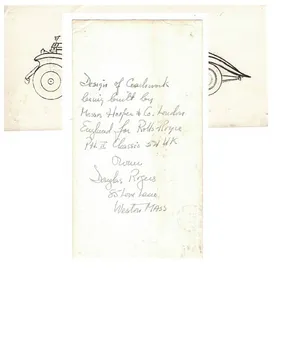 Design of Coachwork
being built by
Messrs Hooper & Co. London
England for Rolls-Royce
Ph II Chassis 54 UK
Owner
Douglas Rogers
Love Lane
Weston Mass